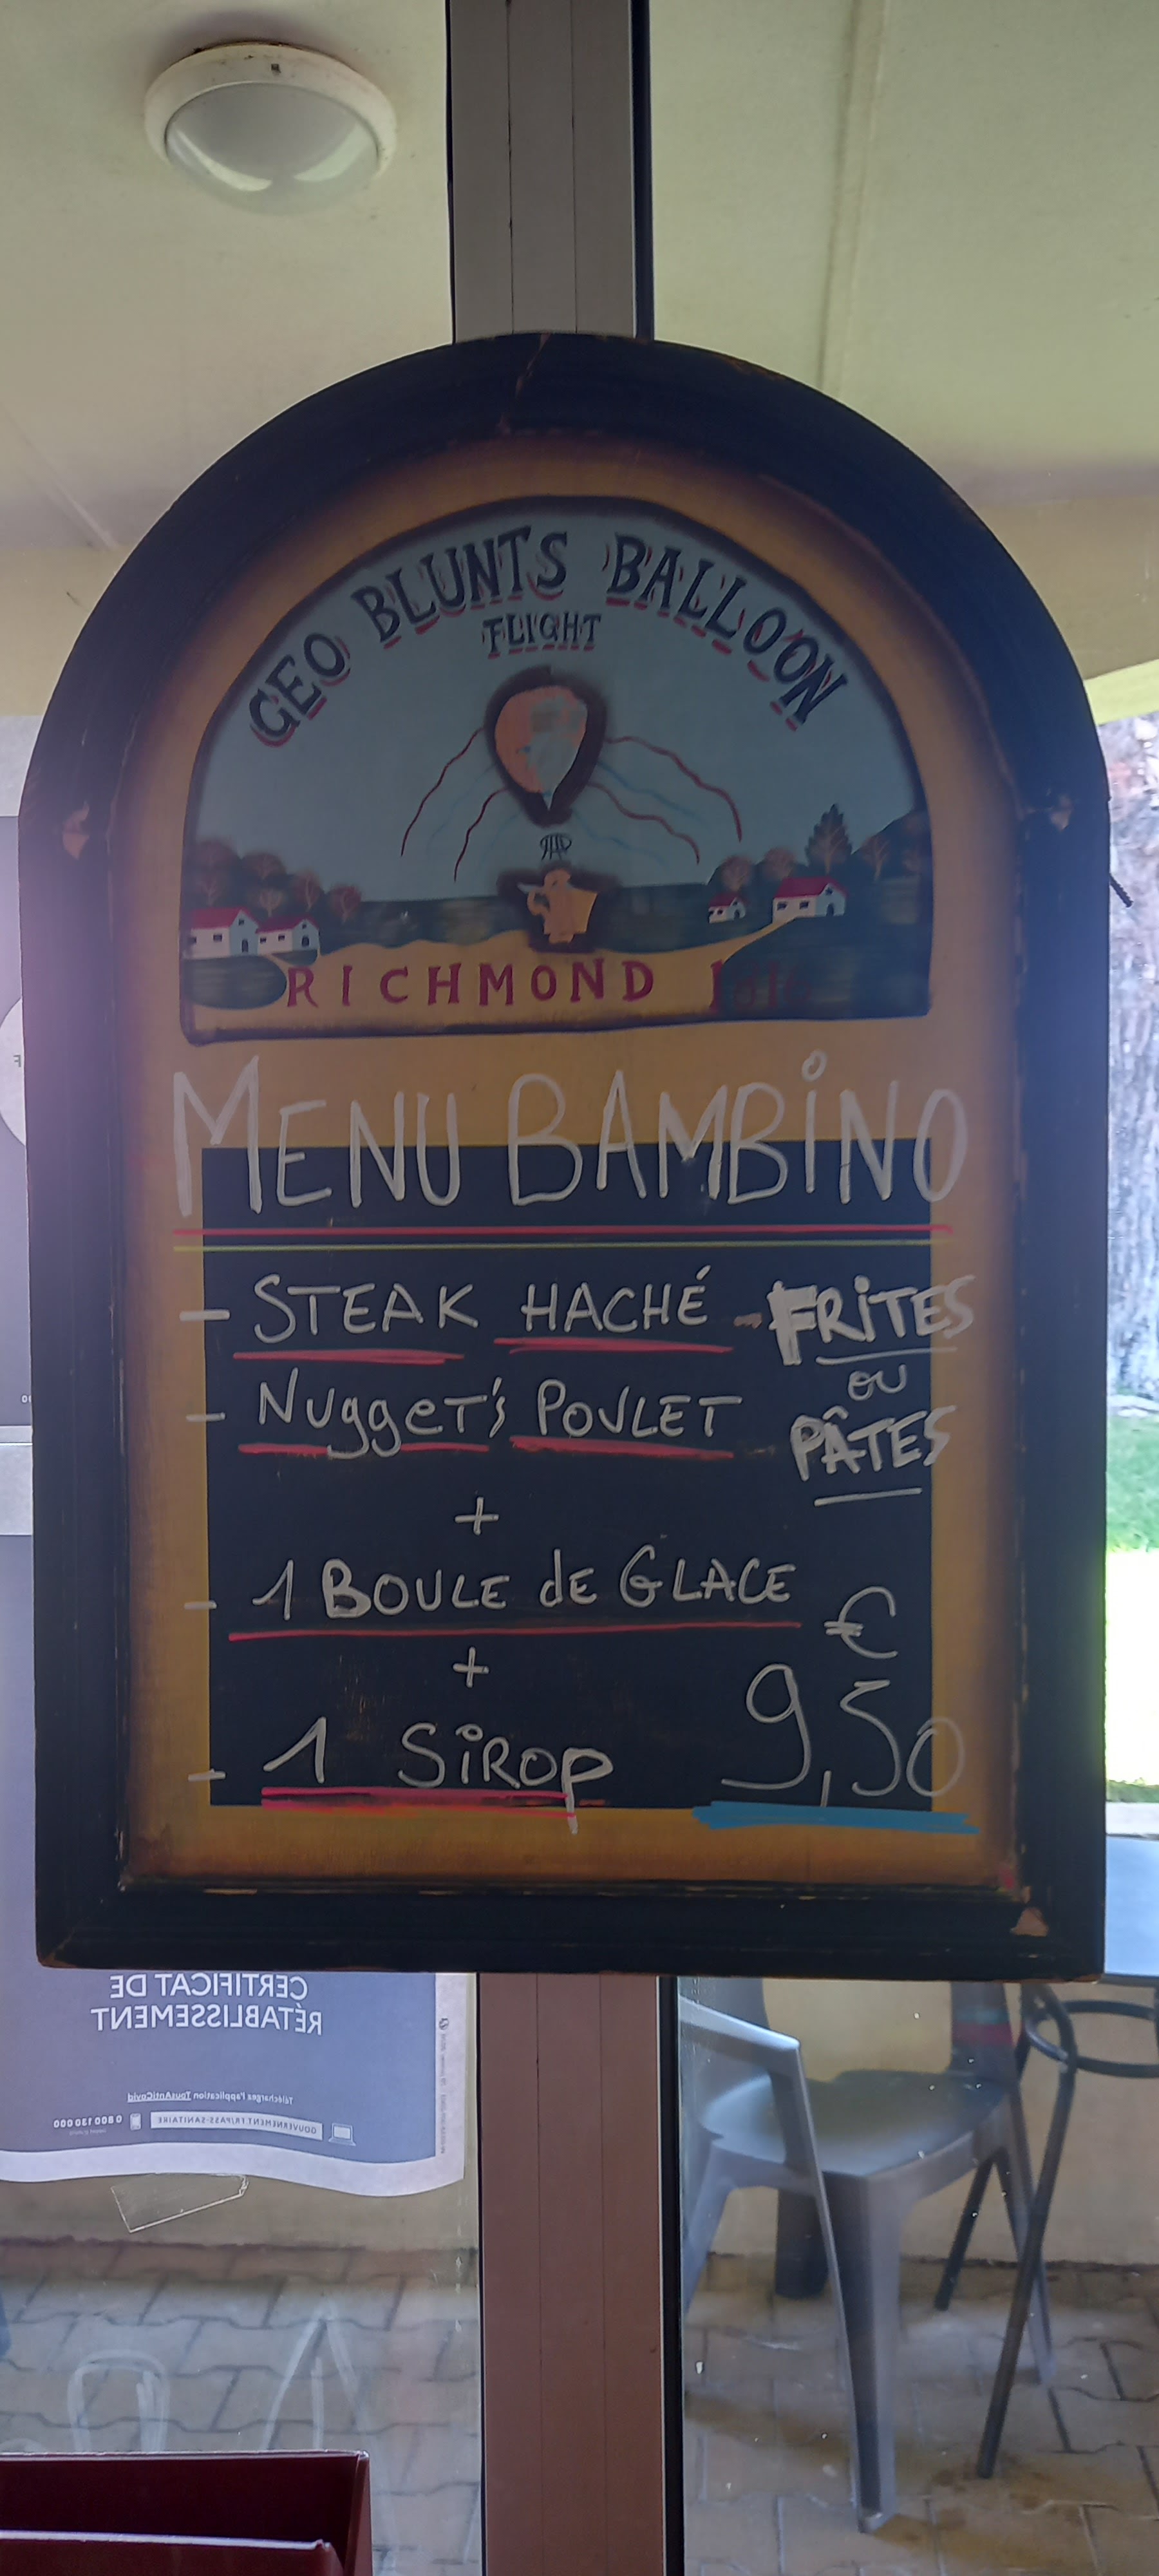 GEO BLUNTS BALLOON
FLIGHT
RICHMOND
MENU BAMBiNO
- STEAK HACHÉ - FRiTES
ou
- NuggeT's POULET - PÂTES
+
- 1 BOULE de GLACE
€
+
- 1 SiROP 9,50
CERTIFICAT DE
RÉTABLISSEMENT
Téléchargez l'application TousAntiCovid
GOUVERNEMENT.FR/PASS-SANITAIRE 0 800 130 000